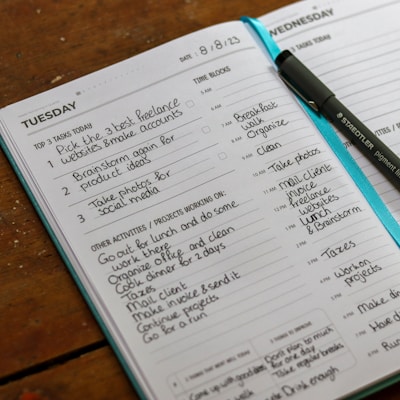 TUESDAY
DATE: 8/8/23
TOP 3 TASKS TODAY
1 Pick the 3 best freelance
websites & make accounts
2 Brainstorm again for
product ideas
3 Take photos for
social media
OTHER ACTIVITIES / PROJECTS WORKING ON:
Go out for lunch and do some
work there
Organize office and clean
Cook dinner for 2 days
Taxes
Mail client
Make invoice & send it
Continue projects
Go for a run
TIME BLOCKS
5 AM
6 AM
7 AM Breakfast
8 AM walk
Organize
9 AM clean
10 AM Take photos
11 AM mail client
invoice
12 PM freelance
websites
1 PM Lunch
2 PM & Brainstorm
3 PM Taxes
4 PM Work on
5 PM projects
6 PM Make din
7 PM Have di
8 PM Run
3 THINGS THAT WENT WELL TODAY
Came up with good ideas
3 THINGS TO IMPROVE
Don't plan too much
for one day
Take regular breaks
Drink enough
WEDNESDAY
TOP 3 TASKS TODAY
STAEDTLER
pigment